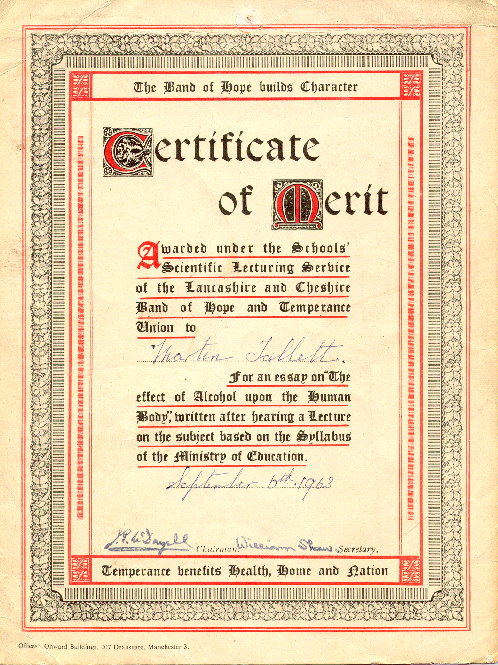 The Band of Hope builds Character
Certificate
of Merit
Awarded under the Schools'
Scientific Lecturing Service
of the Lancashire and Cheshire
Band of Hope and Temperance
Union to
Martin Tallett.
For an essay on "The
effect of Alcohol upon the Human
Body," written after hearing a Lecture
on the subject based on the Syllabus
of the Ministry of Education.
September 6th. 1963
Chairman. William Shaw Secretary.
Temperance benefits Health, Home and Nation
Offices: Onward Buildings, 207 Deansgate, Manchester 3.